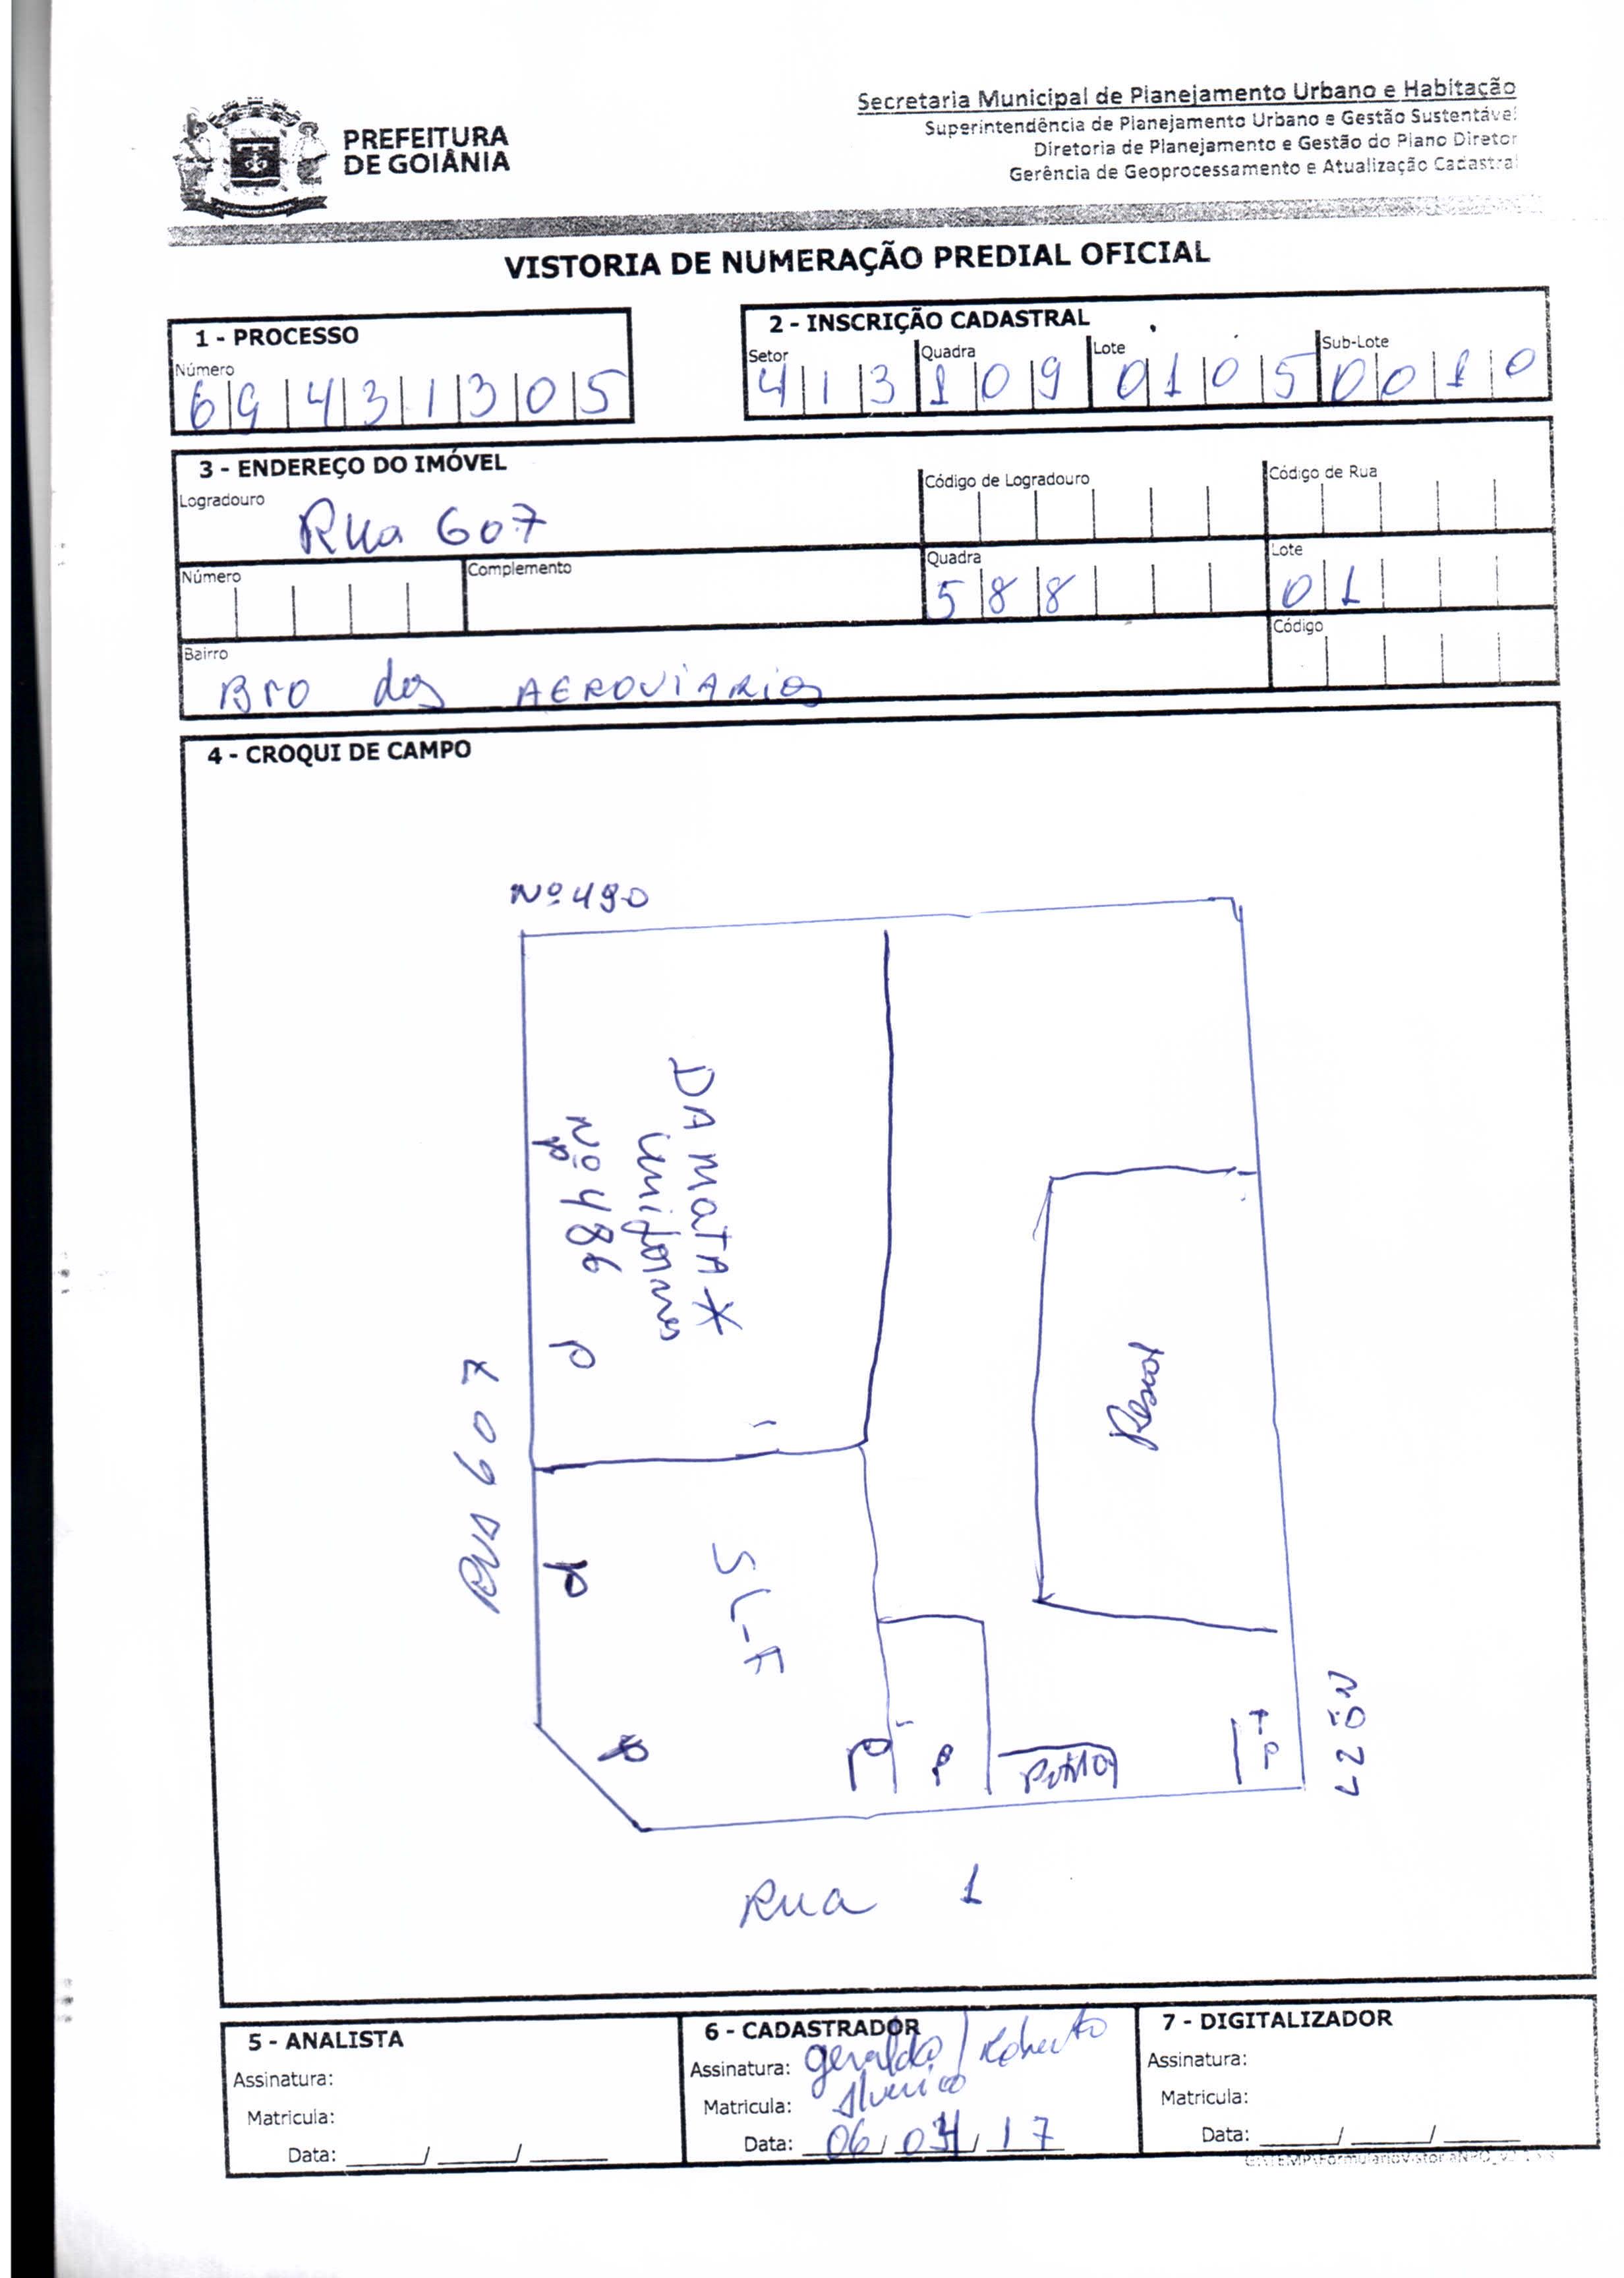 PREFEITURA
DE GOIÂNIA
Secretaria Municipal de Planejamento Urbano e Habitação
Superintendência de Planejamento Urbano e Gestão Sustentável
Diretoria de Planejamento e Gestão do Plano Diretor
Gerência de Geoprocessamento e Atualização Cadastral
VISTORIA DE NUMERAÇÃO PREDIAL OFICIAL
1 - PROCESSO
Número
69431305
2 - INSCRIÇÃO CADASTRAL
Setor Quadra Lote Sub-Lote
413 109 0105 0010
3 - ENDEREÇO DO IMÓVEL
Logradouro
Rua 607
Código de Logradouro
Código de Rua
Número
Complemento
Quadra
588
Lote
01
Bairro
Bro dos AEROVIARIOS
Código
4 - CROQUI DE CAMPO
Nº 490
DA MATA
uniformes
Nº 486
P
P
RUA 607
P
SL-F
P
P
P
Portão
TP
Rua 1
5 - ANALISTA
Assinatura:
Matricula:
Data: ___/___/___
6 - CADASTRADOR
Assinatura: Geraldo / Roberto
Matricula:
Data: 06/04/17
7 - DIGITALIZADOR
Assinatura:
Matricula:
Data: ___/___/___